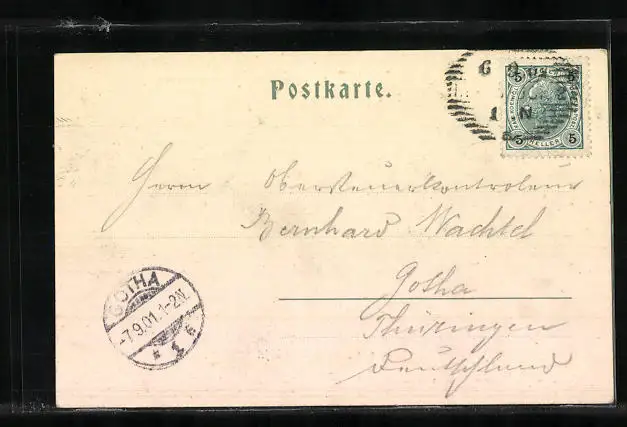 Postkarte.
5 5
HELLER
5 5
Herrn Obersteuerkontroleur
Bernhard Wachtel
Gotha
Thüringen
Deutschland
GOTHA
-7.9.01.1-2N.
* 1 e